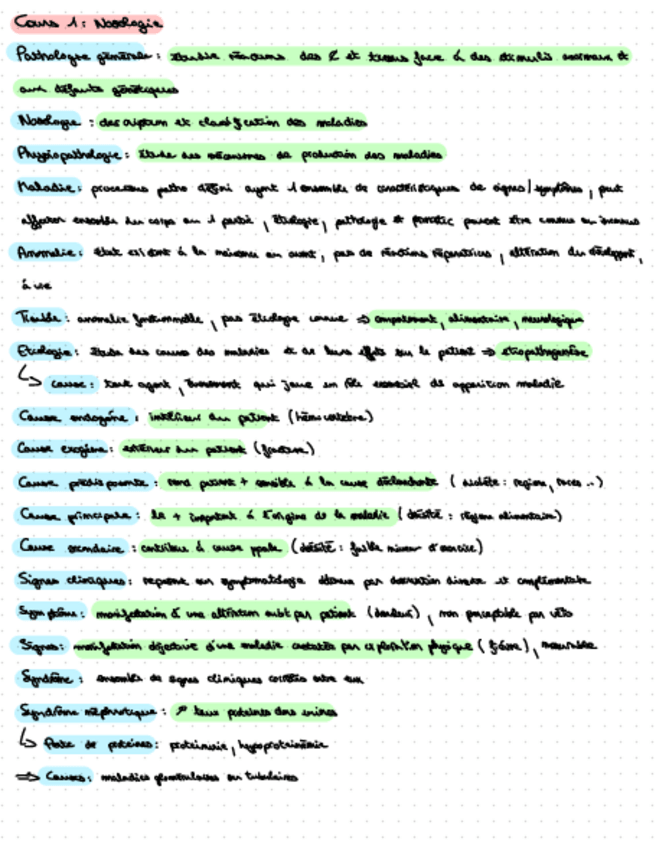 Cours 1 : Nosologie
Pathologie générale : étudie réactions des ȼ et tissus face à des stimulis anormaux et
aux défauts génétiques
Nosologie : description et classification des maladies
Physiopathologie : étude des mécanismes de production des maladies
Maladie : processus patho défini ayant 1 ensemble de caractéristiques de signes / symptômes, peut
affecter ensemble du corps ou 1 partie, étiologie, pathologie et pronostic peuvent être connus ou inconnus
Anomalie : état existant à la naissance ou avant, pas de réactions réparatrices, altération du développt,
à vie
Trouble : anomalie fonctionnelle, pas étiologie connue ⇒ comportement, alimentaire, neurologique
Etiologie : étude des causes des maladies et de leurs effets sur le patient ⇒ étiopathogenèse
↳ cause : tout agent, évènement qui joue un rôle essentiel de apparition maladie
Cause endogène : intérieur du patient (hémi vertèbre)
Cause exogène : extérieur du patient (fracture)
Cause prédisposante : rend patient + sensible à la cause déclenchante (diabète : régime, races ..)
Cause principale : la + important à l'origine de la maladie (obésité : régime alimentaire)
Cause secondaire : contribue à cause ppale (obésité : faible niveau d'exercice)
Signes cliniques : représente sur symptomatologie obtenus par observation directe et complémentaire
Symptôme : manifestation d'une altération subit par patient (douleur), non perceptible par véto
Signes : manifestation objective d'une maladie constatés par exploration physique (fièvre), mesurable
Syndrôme : ensemble de signes cliniques corrélés entre eux
Syndrôme néphrotique : ↗ taux protéines dans urines
↳ Perte de protéines : protéinurie, hypoprotéinémie
⇒ Causes : maladies glomérulaires ou tubulaires